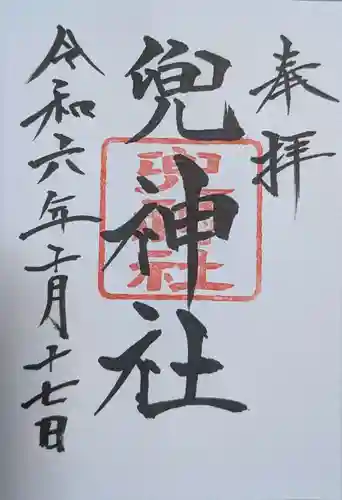 奉拝
兜神社
兜神社
令和六年十一月十七日